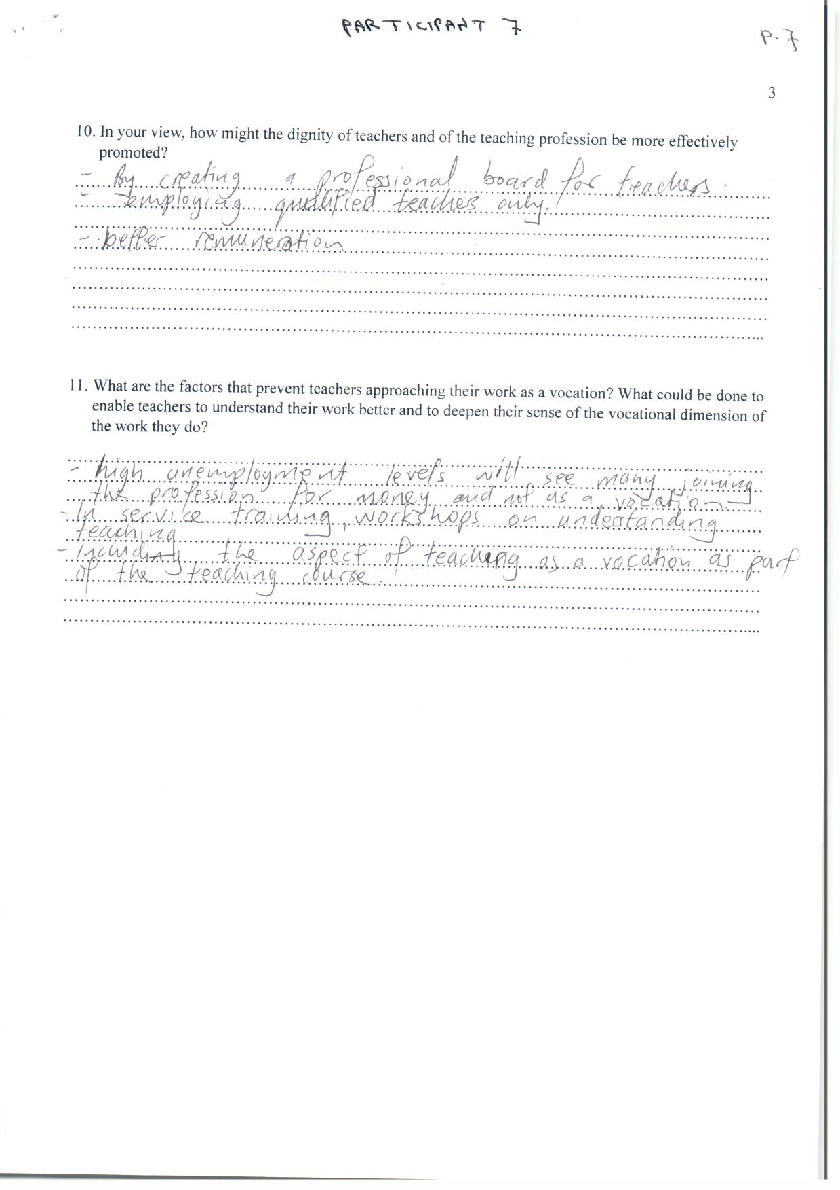 PARTICIPANT 7
P.7
3
10. In your view, how might the dignity of teachers and of the teaching profession be more effectively
promoted?
- By creating a professional board for teachers.
- Employing qualified teaches only.
- better remuneration
11. What are the factors that prevent teachers approaching their work as a vocation? What could be done to
enable teachers to understand their work better and to deepen their sense of the vocational dimension of
the work they do?
- high unemployment levels will see many joining
the profession for money and not as a vocation
- In service training, workshops on understanding
teaching
- Including the aspect of teaching as a vocation as part
of the teaching course.